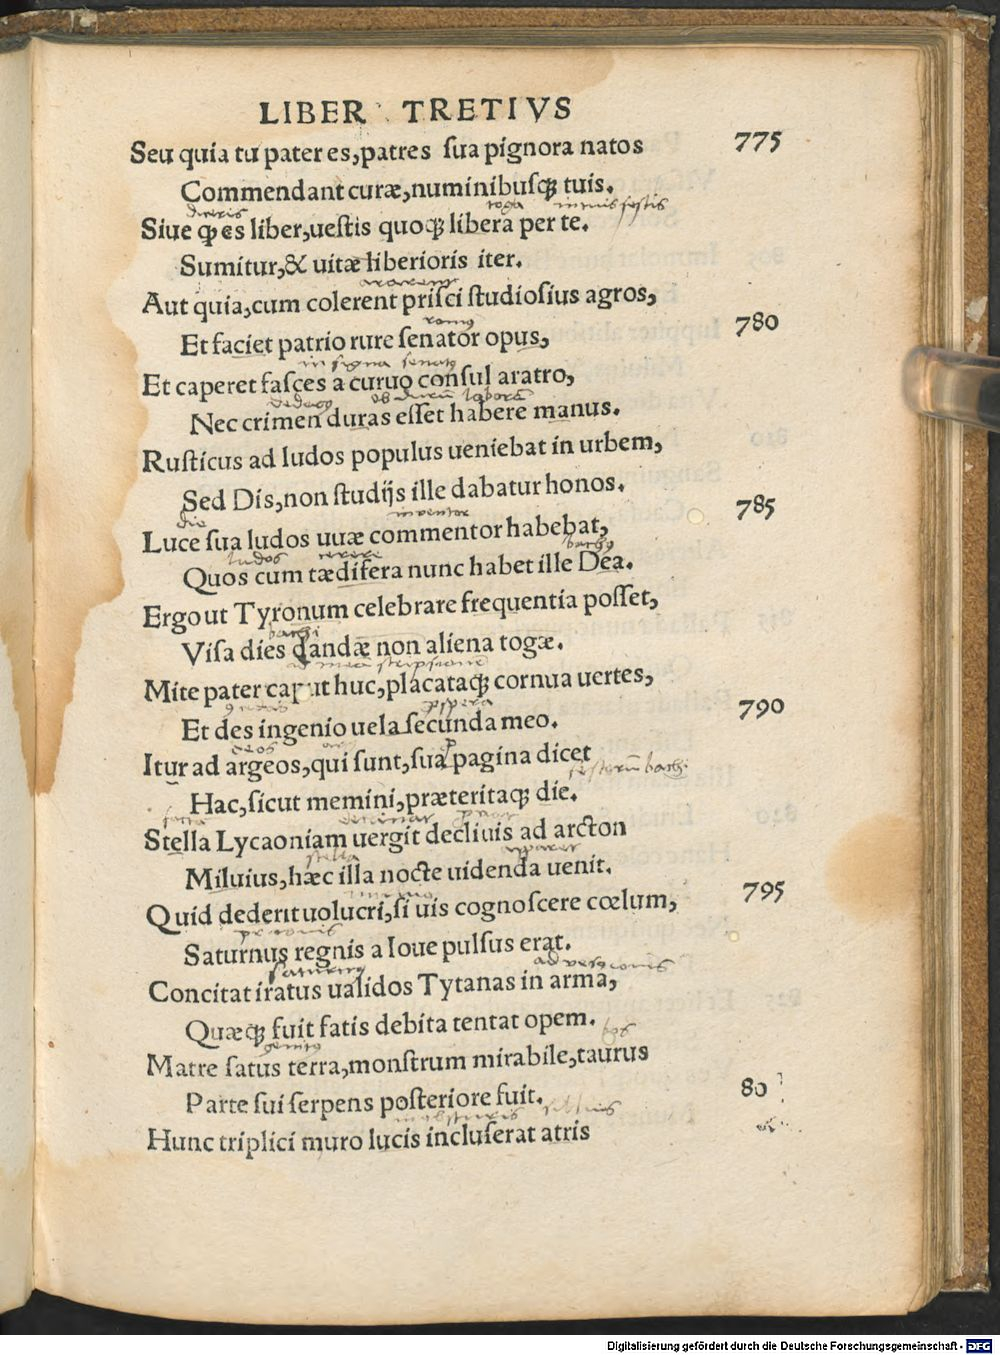 LIBER TRETIVS
Seu quia tu pater es, patres sua pignora natos 775
Commendant curæ, numinibusqꝫ tuis.
diceris toga in tuis festis
Siue ꝙ es liber, uestis quoqꝫ libera per te.
Sumitur, & uitæ liberioris iter.
ararent
Aut quia, cum colerent prisci studiosius agros,
780
Et faciet patrio rure senator opus,
insignia
Et caperet fasces a curuo consul aratro,
ob laborē
Nec crimen duras esset habere manus.
Rusticus ad ludos populus ueniebat in urbem,
Sed Dis, non studijs ille dabatur honos.
die inventor 785
Luce sua ludos uuæ commentor habebat,
ludos cerere
Quos cum tædifera nunc habet ille Dea.
Ergo ut Tyronum celebrare frequentia posset,
Visa dies dandæ non aliena togæ.
bachi
Mite pater caput huc, placataqꝫ cornua uertes,
790
Et des ingenio uela secunda meo.
Itur ad argeos, qui sunt, sua pagina dicet
Hac, sicut memini, præteritaqꝫ die.
Stella Lycaoniam uergit decliuis ad arcton
stella apparet
Miluius, hæc illa nocte uidenda uenit.
795
Quid dederit uolucri, si uis cognoscere cœlum,
Saturnus regnis a Ioue pulsus erat.
Concitat iratus ualidos Tytanas in arma,
Quæqꝫ fuit fatis debita tentat opem.
bos
Matre satus terra, monstrum mirabile, taurus
80
Parte sui serpens posteriore fuit.
Hunc triplici muro lucis incluserat atris
Digitalisierung gefördert durch die Deutsche Forschungsgemeinschaft - DFG